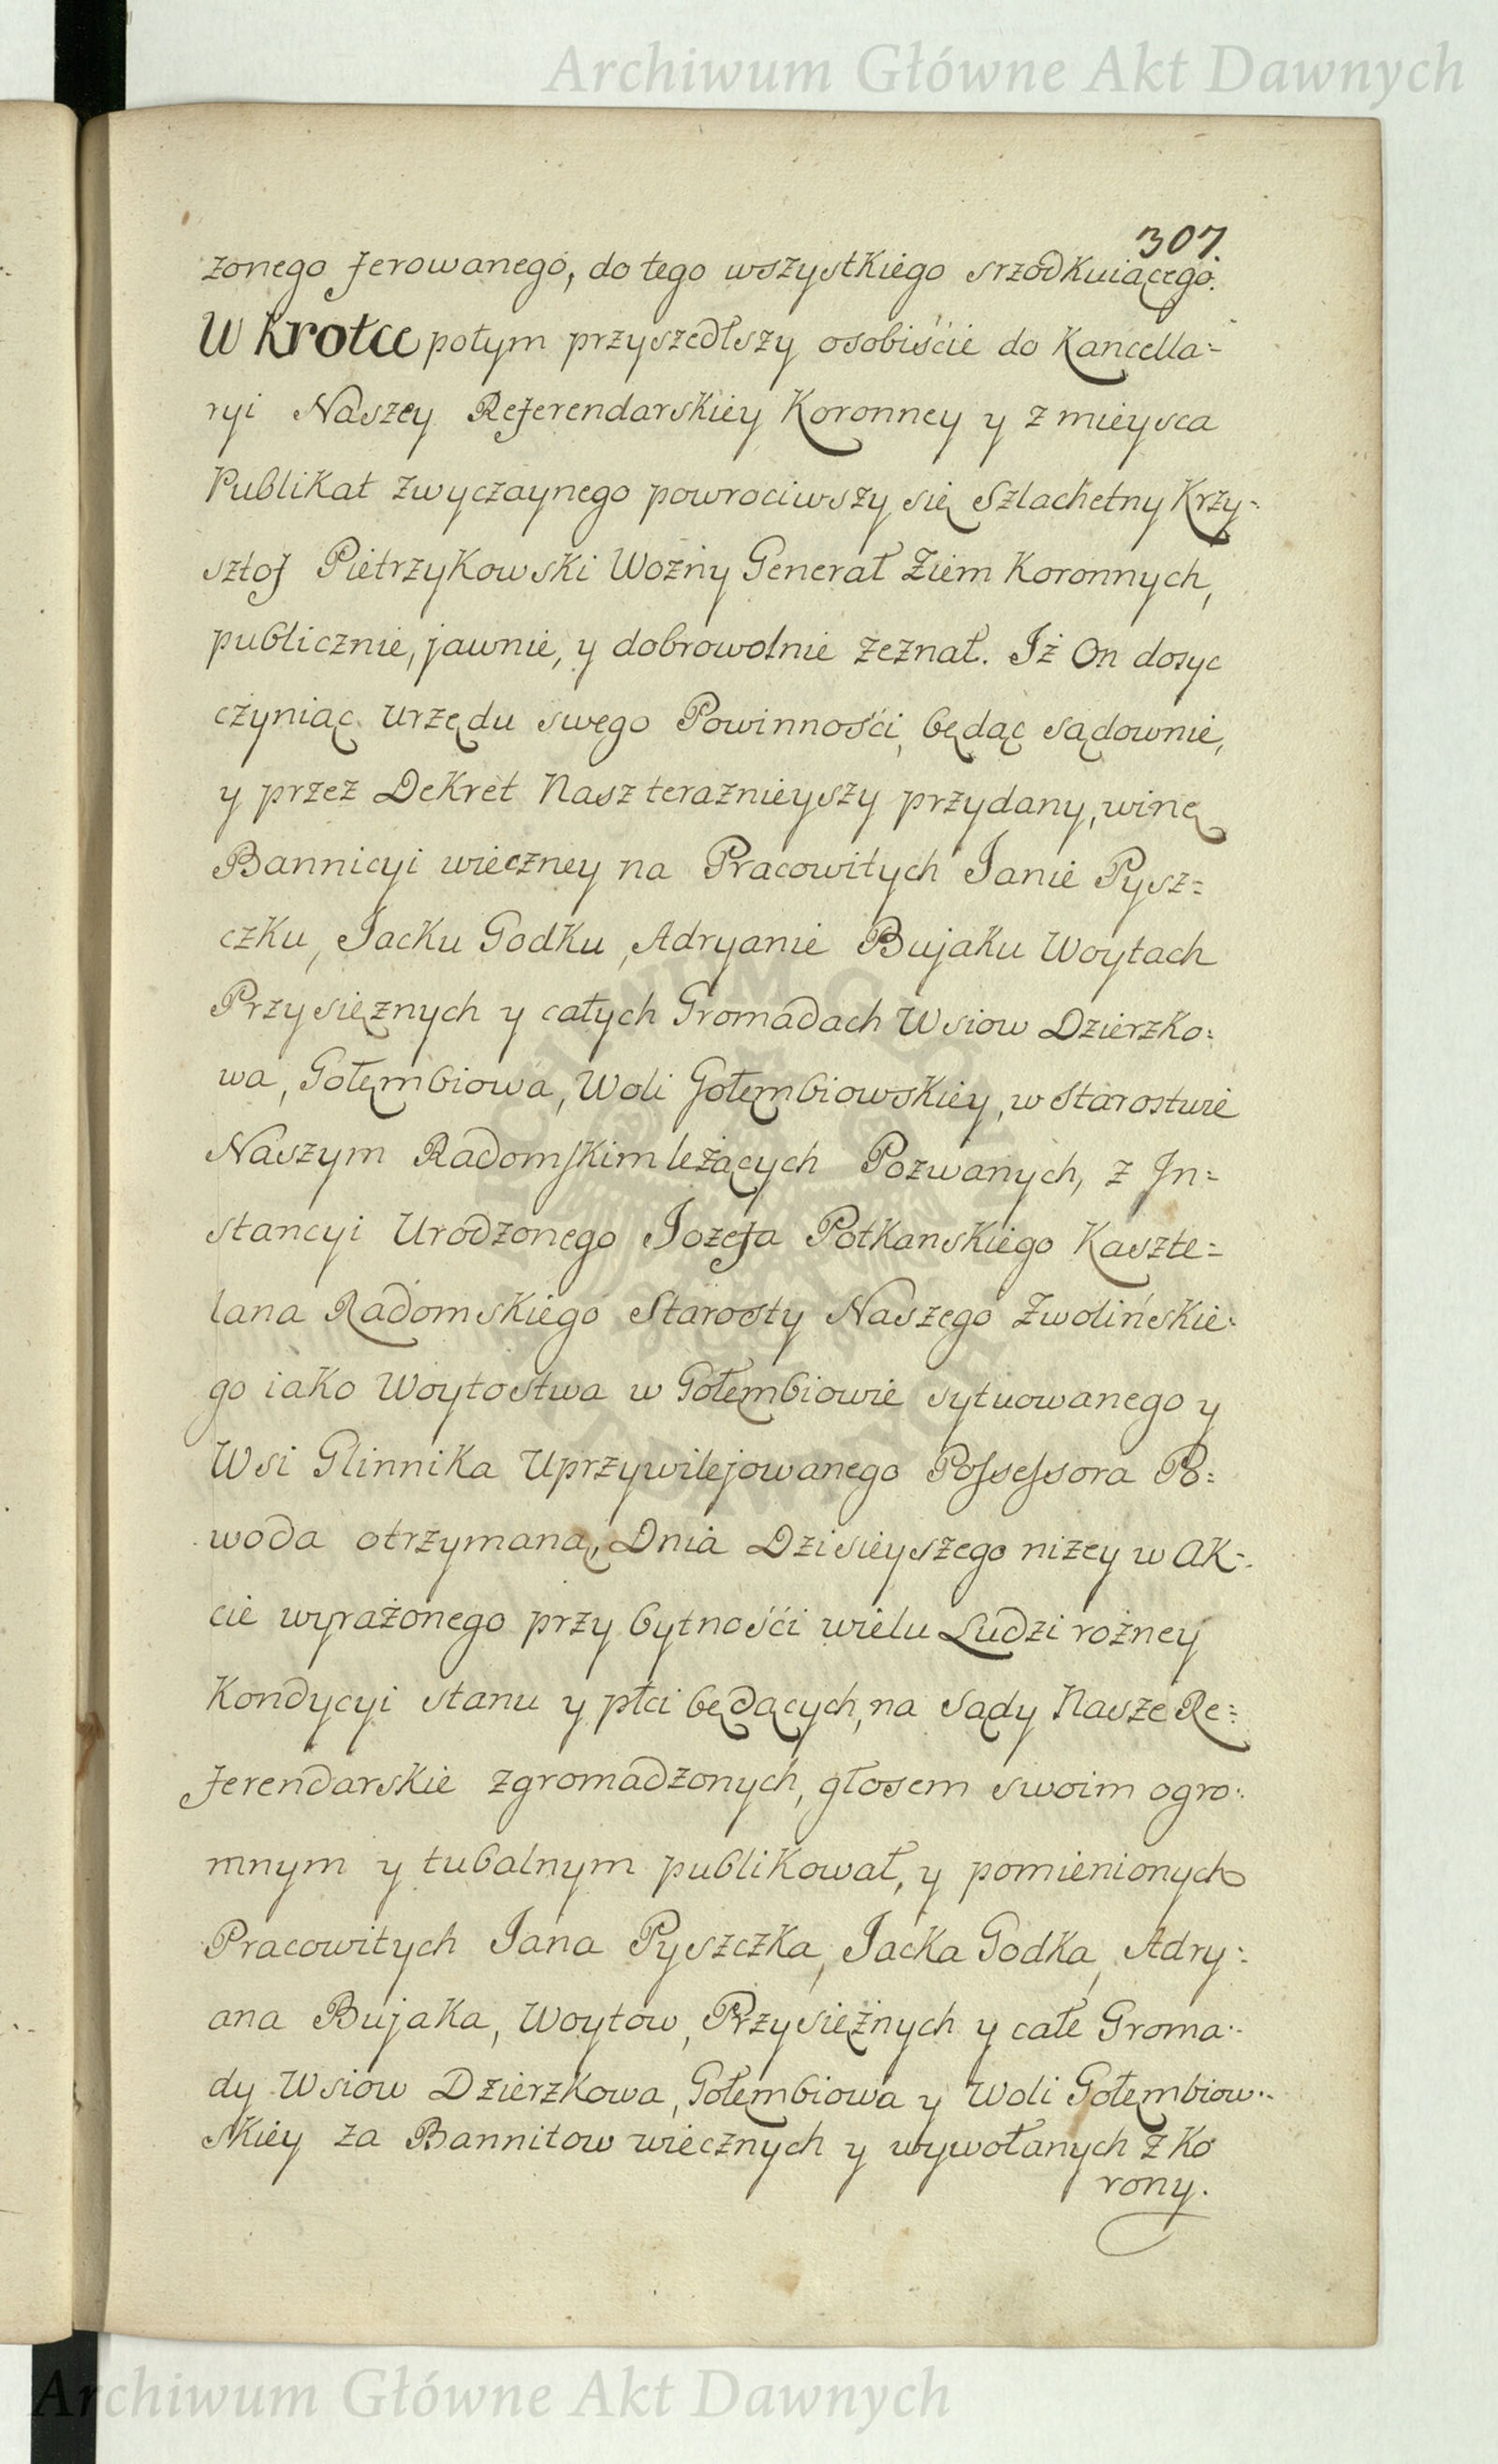 Archiwum Główne Akt Dawnych
307.
zonego ferowanego, do tego wszystkiego srzodkuiącego.
W krotce potym przyszedłszy osobiście do Kancella=
ryi Naszey Referendarskiey Koronney y z mieysca
Publikat zwyczaynego powrociwszy się Szlachetny Krzy=
sztof Pietrzykowski Wozny Generał Ziem Koronnych,
publicznie, jawnie, y dobrowolnie zeznał. Iż On dosyc
czyniąc urzędu swego Powinności, będąc sądownie,
y przez Dekret Nasz teraznieyszy przydany, winę
Bannicyi wieczney na Pracowitych Ianie Pysz=
czku, Iacku Godku, Adryanie Bujaku Woytach
Przysięznych y całych Gromadach Wsiow Dzierzko=
wa, Gołembiowa, Woli Gołembiowskiey, w Starostwie
Naszym Radomskim leżących Pozwanych, z In=
stancyi Urodzonego Iozefa Potkanskiego Kaszte=
lana Radomskiego Starosty Naszego Zwolińskie=
go iako Woytostwa w Gołembiowie sytuowanego y
Wsi Glinnika Uprzywilejowanego Possessora Po=
woda otrzymaną, Dnia Dzisieyszego nizey w Ak=
cie wyrażonego przy bytnośći wielu Ludzi rożney
Kondycyi stanu y płci będących, na Sądy Nasze Re=
ferendarskie zgromadzonych, głosem swoim ogro=
mnym y tubalnym publikował, y pomienionych
Pracowitych Iana Pyszczka, Iacka Godka, Adry=
ana Bujaka, Woytow, Przysiężnych y całe Groma=
dy Wsiow Dzierzkowa, Gołembiowa y Woli Gołembiow=
skiey za Bannitow wiecznych y wywołanych z Ko
rony.
Archiwum Główne Akt Dawnych